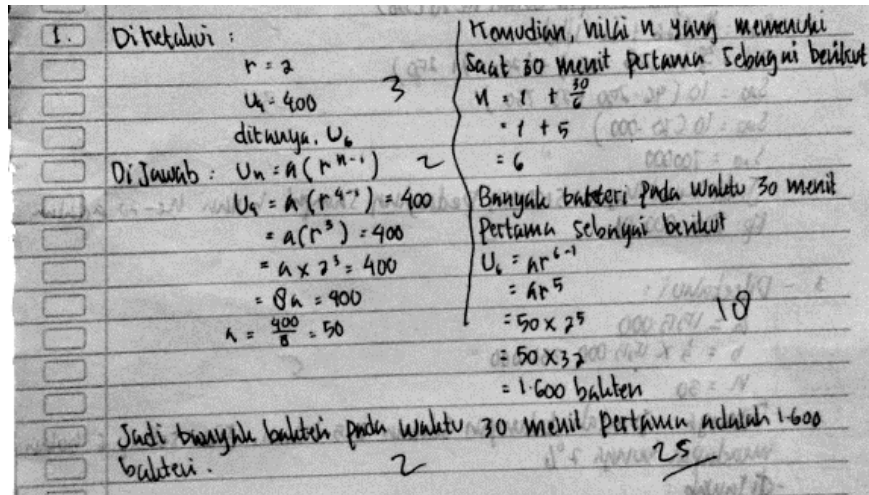 1. Diketahui :
r = 2
U₄ = 400
3
ditanya, U₆
DiJawab : Un = a(rⁿ⁻¹)
2
U₄ = a(r⁴⁻¹) = 400
= a(r³) = 400
= a x 2³ = 400
= 8a = 400
a = 400/8 = 50
Kemudian, nilai n yang memenuhi
Saat 30 menit pertama sebagai berikut
n = 1 + 30/6
= 1 + 5
= 6
Banyak bakteri pada waktu 30 menit
Pertama sebagai berikut
U₆ = ar⁶⁻¹
= ar⁵
= 50 x 2⁵
18
= 50 x 32
= 1.600 bakteri
Jadi banyak bakteri pada waktu 30 menit Pertama adalah 1.600
bakteri.
2
25